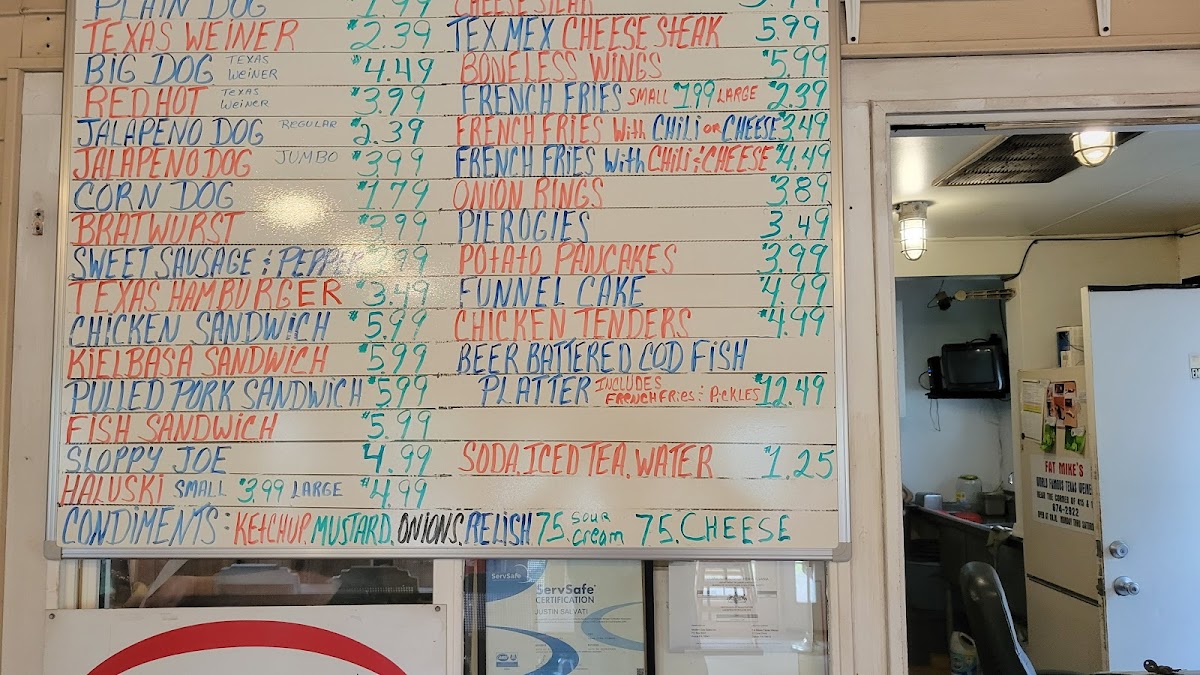 PLAIN DOG 1.99
TEXAS WEINER $2.39
BIG DOG TEXAS WEINER $4.49
RED HOT TEXAS WEINER $3.99
JALAPENO DOG REGULAR $2.39
JALAPENO DOG JUMBO $3.99
CORN DOG $1.79
BRATWURST $3.99
SWEET SAUSAGE & PEPPER
TEXAS HAMBURGER $3.49
CHICKEN SANDWICH $5.99
KIELBASA SANDWICH $5.99
PULLED PORK SANDWICH $5.99
FISH SANDWICH $5.99
SLOPPY JOE 4.99
HALUSKI SMALL $3.99 LARGE $4.99
CHEESE STEAK
TEX MEX CHEESE STEAK 5.99
BONELESS WINGS $5.99
FRENCH FRIES SMALL $1.99 LARGE $2.39
FRENCH FRIES WITH CHILI OR CHEESE $3.49
FRENCH FRIES WITH CHILI & CHEESE $4.49
ONION RINGS $3.89
PIEROGIES 3.49
POTATO PANCAKES $3.99
FUNNEL CAKE $4.99
CHICKEN TENDERS $4.99
BEER BATTERED COD FISH
PLATTER INCLUDES FRENCH FRIES & PICKLES $12.49
SODA, ICED TEA, WATER $1.25
CONDIMENTS: KETCHUP, MUSTARD, ONIONS, RELISH 75. SOUR CREAM 75. CHEESE
ServSafe
ServSafe
CERTIFICATION
JUSTIN SALVATI
FAT MIKE'S
WORLD FAMOUS TEXAS WEINER
NEAR THE CORNER OF
874-2922